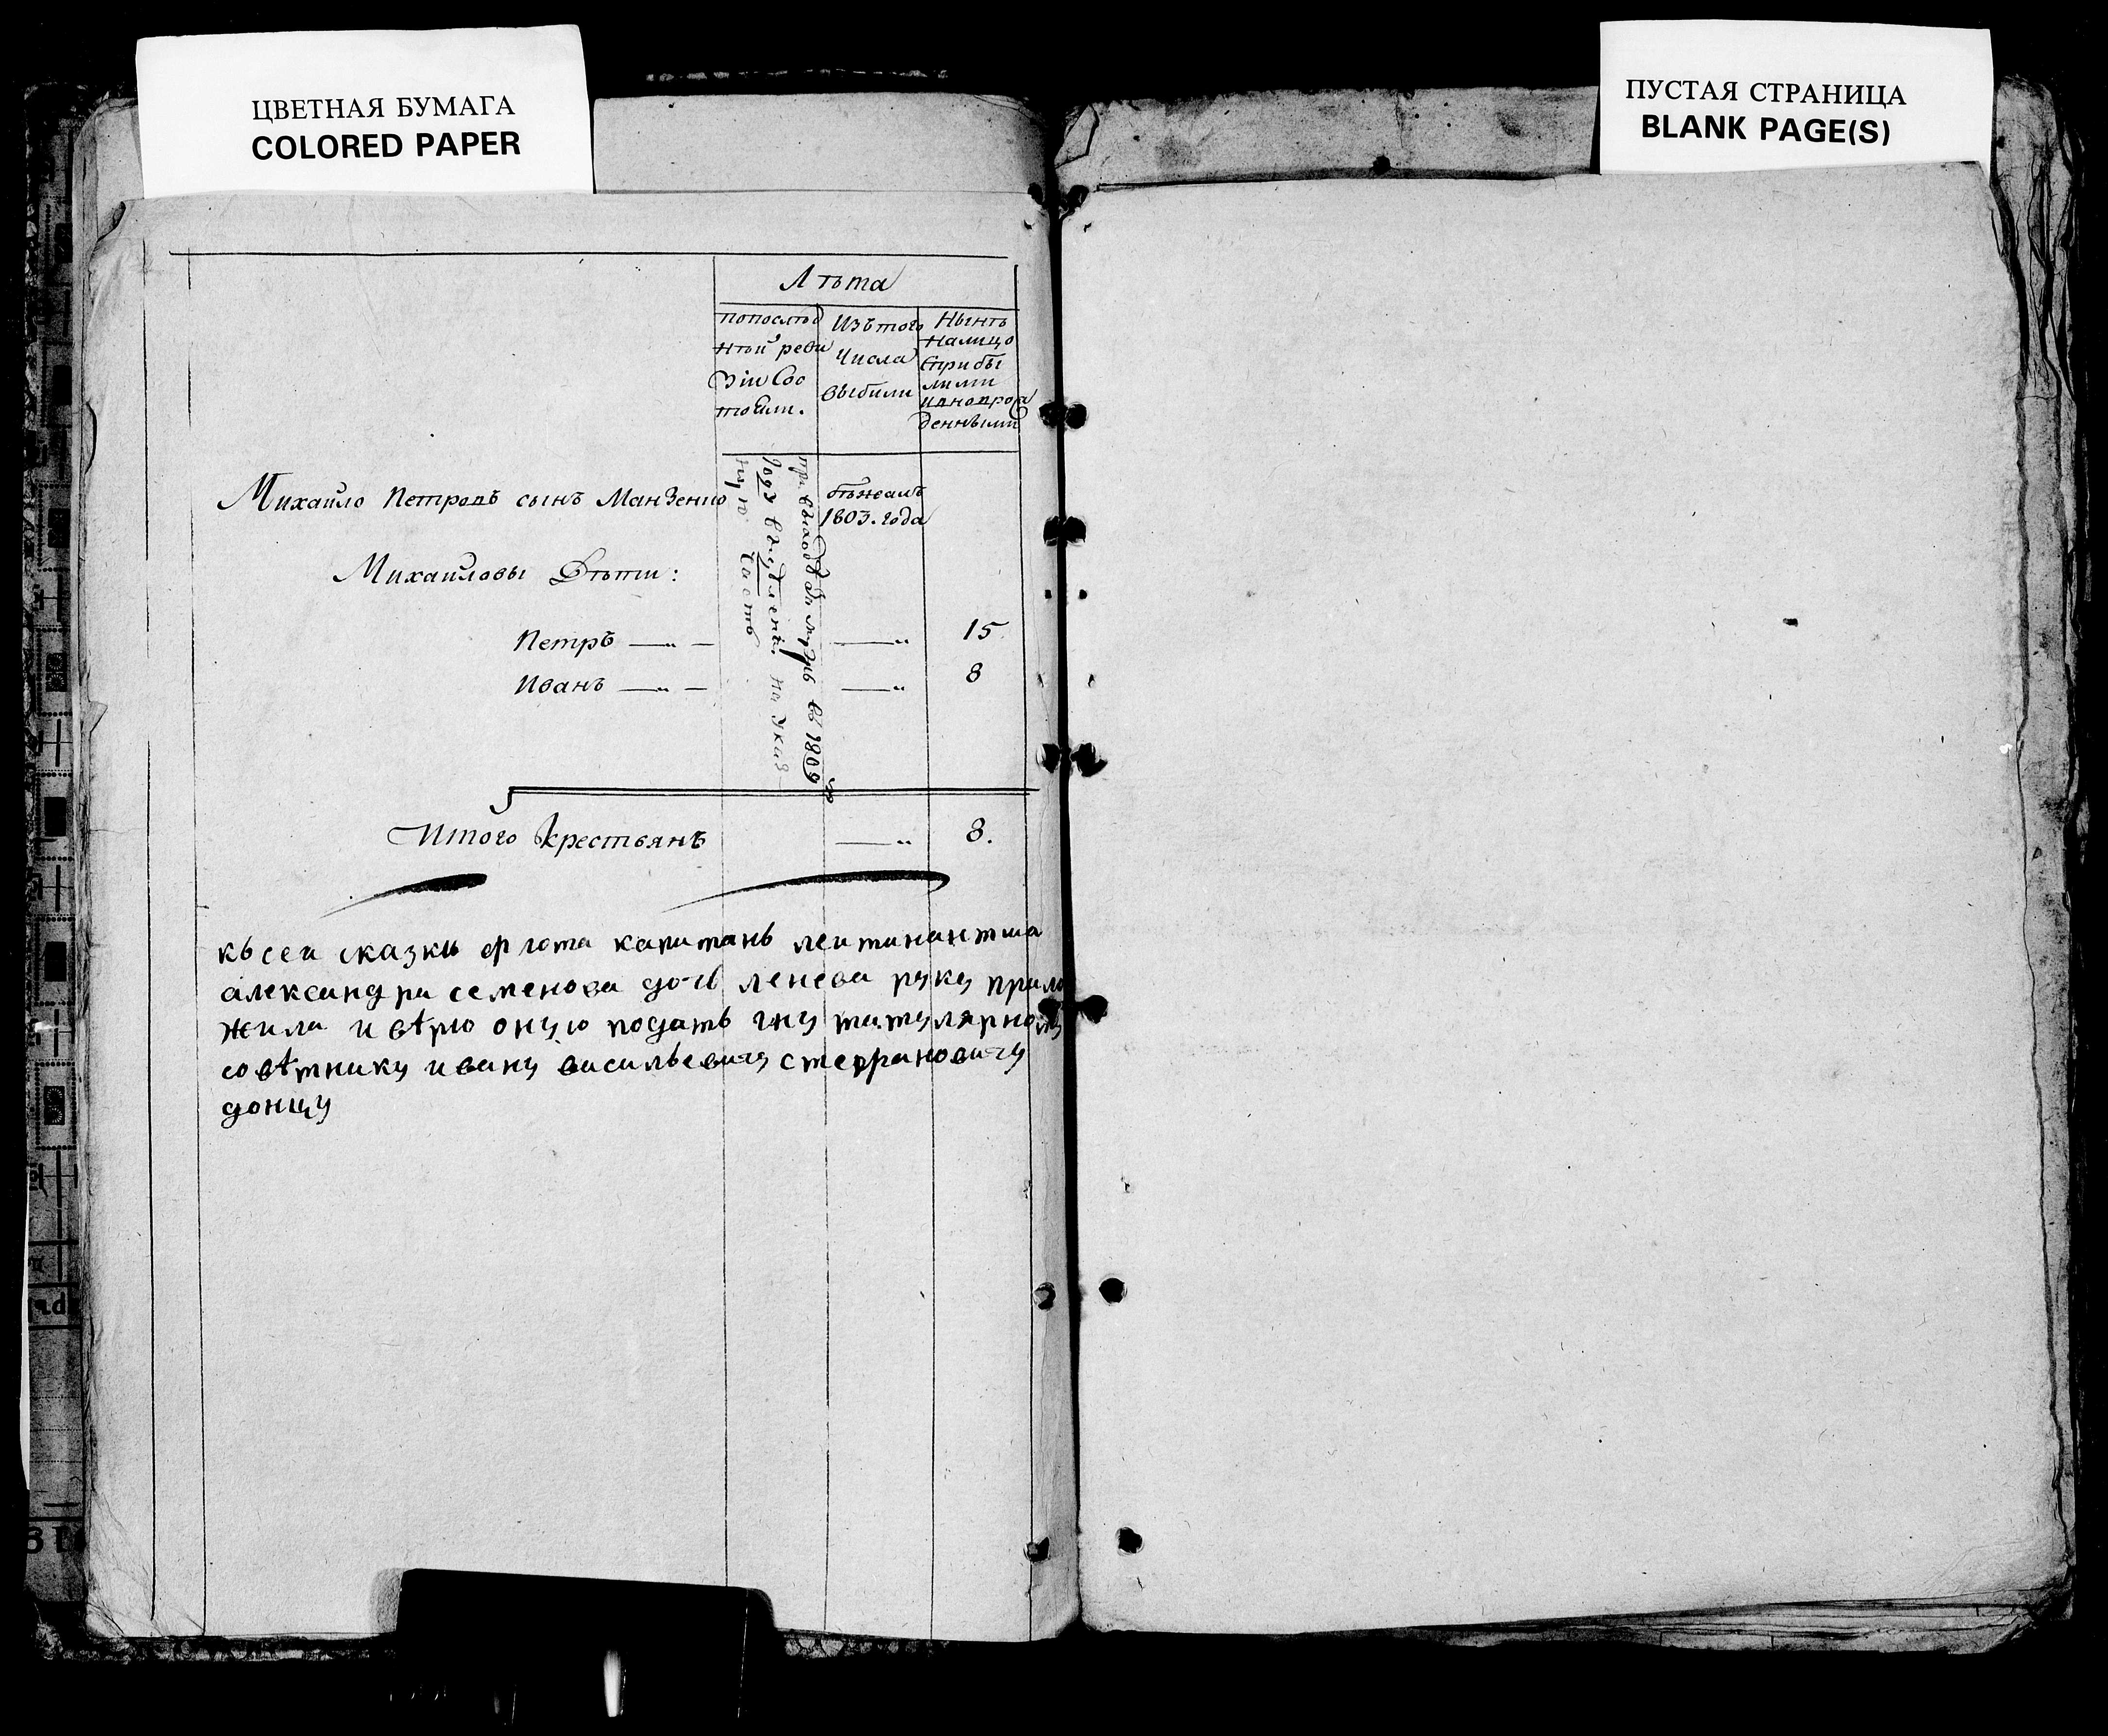 ЦВЕТНАЯ БУМАГА
COLORED PAPER
ПУСТАЯ СТРАНИЦА
BLANK PAGE(S)
Лѣта
попослѣд
нѣй реви
зіи Сос
тояли.
Изъ того
Числа
выбыли
Нынѣ
налицо
Сприбы
лыми
денными
Михайло Петровъ сынъ
бѣжалъ
1803. года
Михайловы Дѣти:
Петръ — „ — — „ 15
Иванъ — „ — — „ 8
Итого крестьянъ — „ 8.
къ сей сказки флота капитанъ леитинантша
александра семенова дочь ленева руку прило
жила и вѣрю оную подать гну титулярному
совѣтнику ивану васильевичу стефановичу
донцу